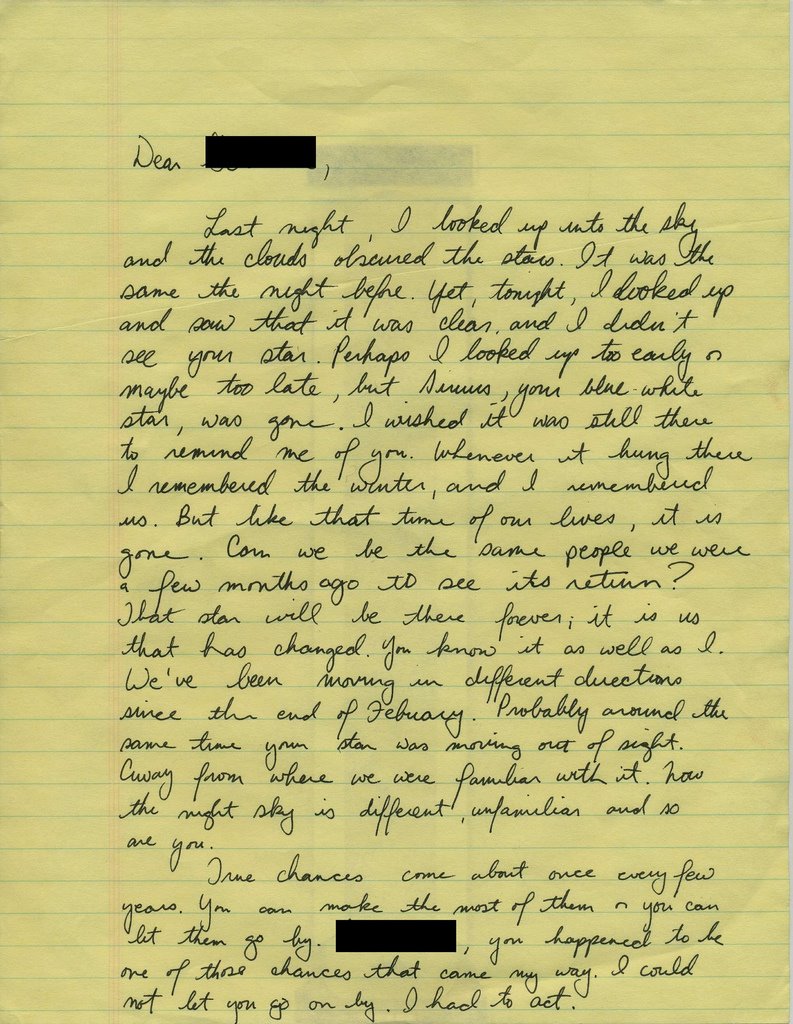 Dear ,
Last night, I looked up into the sky
and the clouds obscured the stars. It was the
same the night before. Yet, tonight, I looked up
and saw that it was clear, and I didn't
see your star. Perhaps I looked up too early or
maybe too late, but Sirius, your blue-white
star, was gone. I wished it was still there
to remind me of you. Whenever it hung there
I remembered the winter, and I remembered
us. But like that time of our lives, it is
gone. Can we be the same people we were
a few months ago to see its return?
That star will be there forever; it is us
that has changed. You know it as well as I.
We've been moving in different directions
since the end of Febuary. Probably around the
same time your star was moving out of sight.
Away from where we were familiar with it. Now
the night sky is different, unfamiliar and so
are you.
True chances come about once every few
years. You can make the most of them or you can
let them go by. , you happened to be
one of those chances that came my way. I could
not let you go on by. I had to act.